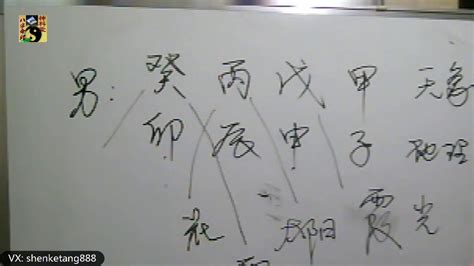 男：癸 丙 戊 甲 天象
卯 辰 申 子 地理
花 太阳 霞光
VX: shenketang888